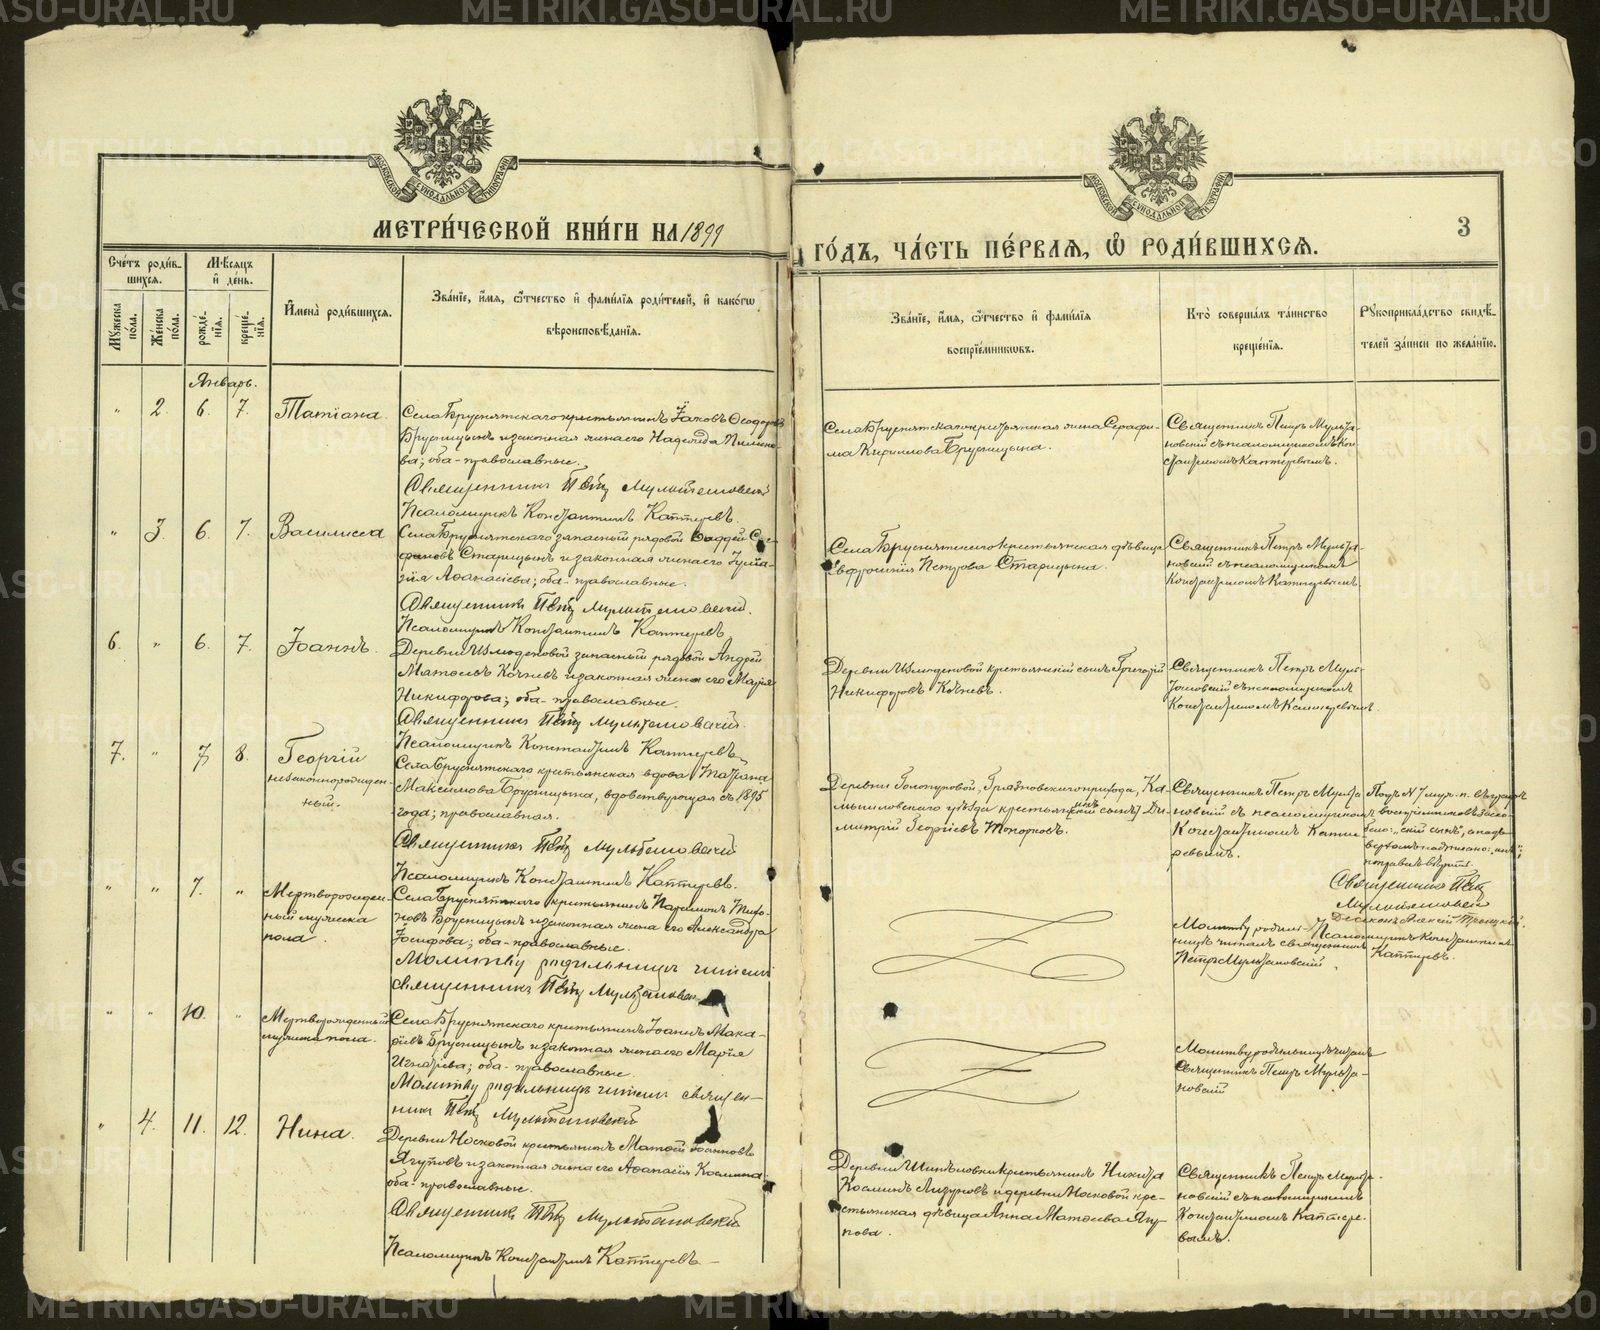 METRIKI.GASO-URAL.RU
МЕТРИ́ЧЕСКОЙ КНИ́ГИ НА 1899
ГО́ДЪ, ЧА́СТЬ ПЕ́РВАЯ, Ѡ РОДИ́ВШИХСЯ.
3
МОСКОВСКОЙ СѴНОДАЛЬНОЙ ТИПОГРАФІИ
МОСКОВСКОЙ СѴНОДАЛЬНОЙ ТИПОГРАФІИ
Сче́тъ роди́вшихся.
Мꙋ́жеска по́ла.
Же́нска по́ла.
Мѣ́сяцъ и҆ де́нь.
рожде́нїя.
креще́нїя.
И҆мена̀ роди́вшихся.
Зва́нїе, и҆́мя, ѻ҆́тчество и҆ фами́лїя роди́телей, и҆ како́гѡ
вѣроисповѣ́данїя.
Зва́нїе, и҆́мя, ѻ҆́тчество и҆ фами́лїя
воспрїе́мникѡвъ.
Кто̀ соверша́лъ та́инство
креще́нїя.
Рꙋкоприкла́дство свидѣ́-
телей за́писи по жела́нїю.
Январь.
" 2. 6. 7. Татіана
Села Бруснятскаго крестьянинъ Іаковъ Ѳеодоровъ
Брусницынъ и законная жена его Надежда Пимено-
ва; оба - православные.
Священникъ Петръ Мультановскій
Псаломщикъ Константинъ Каптеревъ.
Села Бруснятскаго крестьянская жена Серафи-
ма Кириллова Брусницына.
Священникъ Петръ Мульта-
новскій съ псаломщикомъ Кон-
стантиномъ Каптеревымъ.
" 3. 6. 7. Василисса
Села Бруснятскаго запасный рядовой Ѳаддей Сте-
фановъ Старицынъ и законная жена его
Аѳанасіева; оба - православные.
Священникъ Петръ Мультановскій.
Псаломщикъ Константинъ Каптеревъ
Села Бруснятскаго крестьянская дѣвица
Евфросинія Петрова Старицына.
Священникъ Петръ Мульта-
новскій съ псаломщикомъ
Константиномъ Каптеревымъ.
6. " 6. 7. Іоаннъ.
Деревни Измоденовой запасный рядовой Андрей
Матѳеевъ Кочневъ и законная жена его Марія
Никифорова; оба - православные.
Священникъ Петръ Мультановскій.
Псаломщикъ Константинъ Каптеревъ
Деревни Измоденовой крестьянскій сынъ Григорій
Никифоровъ Кочневъ.
Священникъ Петръ Муль-
тановскій съ псаломщикомъ
Константиномъ Каптеревымъ.
7. " 7. 8. Георгій
незаконнорожден-
ный.
Села Бруснятскаго крестьянская вдова Татіана
Максимова Брусницына, вдовствующая съ 1895
года; православная.
Священникъ Петръ Мультановскій
Псаломщикъ Константинъ Каптеревъ.
Деревни Голопуповой, Грязновскаго прихода, Ка-
мышловскаго уѣзда крестьян[скій сынъ] инъ Ди-
митрій Георгіевъ Топорковъ.
Священникъ Петръ Мульта-
новскій съ псаломщикомъ
Константиномъ Капте-
ревымъ.
Подъ № 7 муж. п. въ графѣ
о воспріемникахъ заско-
блено: "скій сынъ", а надъ
надписано: "инъ";
поправкѣ вѣрить.
Священникъ Петръ
Мультановскій
Діаконъ Алексій Троицкій.
Псаломщикъ Константинъ
Каптеревъ.
" " 7. " Мертворожден-
ный мужеска
пола.
Села Бруснятскаго крестьянинъ Парамонъ Тихо-
новъ Брусницынъ и законная жена его Александра
Іосифова; оба - православные.
Молитву родильницѣ читалъ
священникъ Петръ Мультановскій
Молитву родиль-
ницѣ читалъ священникъ
Петръ Мультановскій
" " 10. " Мертворожденный
мужеска пола.
Села Бруснятскаго крестьянинъ Іоаннъ Мака-
ріевъ Брусницынъ и законная жена его Марія
Игнатіева; оба - православные.
Молитву родильницѣ читалъ священ-
никъ Петръ Мультановскій
Молитву родильницѣ читалъ
Священникъ Петръ Мульта-
новскій
" 4. 11. 12. Нина.
Деревни Носковой крестьянинъ Матѳей Іоанновъ
Ягуповъ и законная жена его Аѳанасія Космина
оба - православные.
Священникъ Петръ Мультановскій
Псаломщикъ Константинъ Каптеревъ
Деревни крестьянинъ Никита
Косминъ и деревни Носковой кре-
стьянская дѣвица Анна Матѳеева Ягу-
пова.
Священникъ Петръ Мульта-
новскій съ псаломщикомъ
Константиномъ Каптере-
вымъ.
METRIKI.GASO-URAL.RU